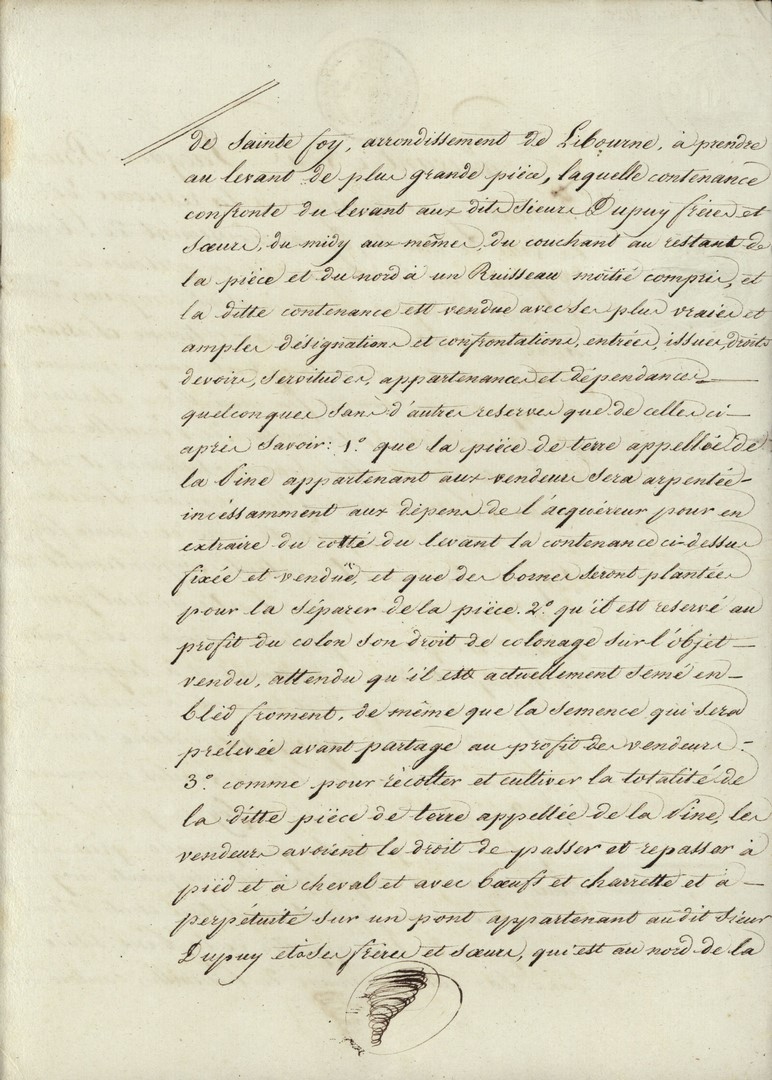 de Sainte foy, arrondissement de Libourne, à prendre
au levant de plus grande pièce, laquelle contenance
confronte du levant aux dits Sieurs Dupuy frères et
Sœurs, du midy aux mêmes, du couchant au restant de
la pièce et du nord à un Ruisseau moitié compris, et
la ditte contenance est vendue avec ses plus vraies et
amples désignations et confrontations, entrées, issues, droits
devoirs, Servitudes, appartenances et dépendances
quelconques Sans d'autres reserves que de celles ci-
après Savoir : 1.° que la pièce de terre appellée de
la Vine appartenant aux vendeurs Sera arpentée
incéssamment aux dépens de l'acquéreur pour en
extraire du cotté du levant la contenance ci-dessus
fixée et vendüe, et que des bornes Seront plantées
pour la Séparer de la pièce. 2.° qu'il est reservé au
profit du colon Son droit de colonage Sur l'objet
vendu, attendu qu'il est actuellement Semé en
bléd froment, de même que la Semence qui Sera
prélevée avant partage au profit des vendeurs :
3.° comme pour récolter et cultiver la totalité de
la ditte pièce de terre appellée de la Vine, les
vendeurs avoient le droit de passer et repasser à
pièd et à cheval et avec bœufs et charrette et à
perpétuité Sur un pont appartenant audit Sieur
Dupuy et à Ses frères et Sœurs, qui est au nord de la